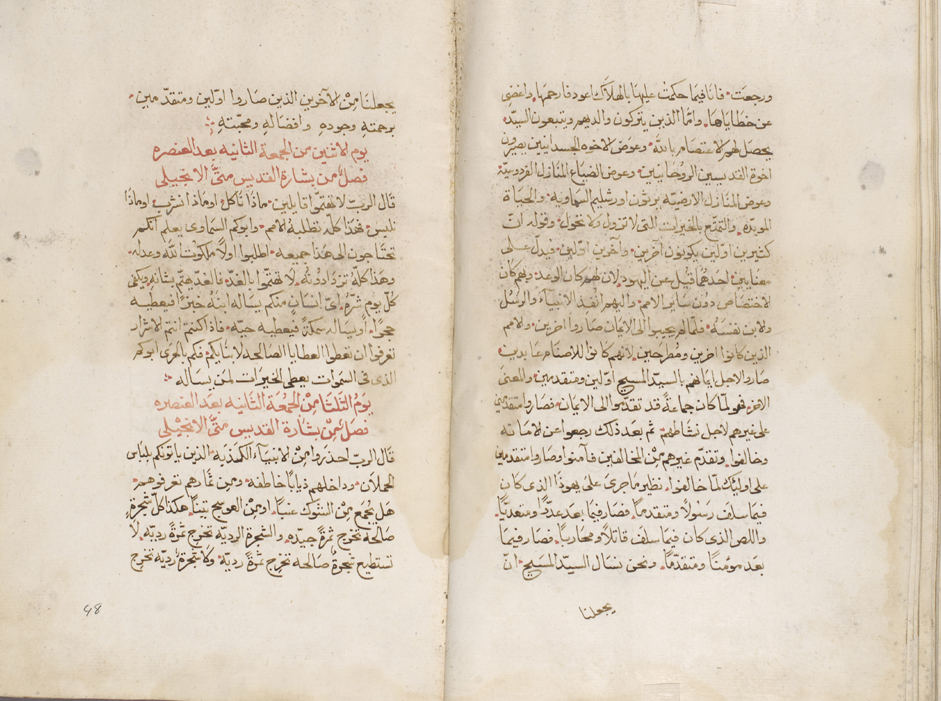 ورجعت فانا فيما حكمت عليها بالهلاك اعود فارحمها واغضى
عن خطاياها واما الذين يتركون والديهم ويتبعون السيد
يحصل لهم الاعتصام بالله وعوض الاخوه الجسدانيين يصيرون
اخوة القديسين الروحانيين وعوض الضياع المنازل الفردوسية
وعوض المنازل الارضيه يرثون اورشليم السماويه والحياة
الموبده والتمتع بالخيرات التى لا تزول ولا تحول وقوله ان
كثيرين اولين يكونون آخرين وآخرين اولين فيدل على
معنايين احدهما قيل عن اليهود لان لهم كان الوعد وبهم كان
الاختصاص دون ساير الامم واليهم انفذ الانبياء والرسل
والابن نفسه فلما لم يجيبوا الى الايمان صاروا اخرين والامم
الذين كانوا اخرين ومطرحين لانهم كانوا للاصنام عابدين
صاروا لاجل ايمانهم بالسيد المسيح اولين ومتقدمين والمعنى
الاخر هو لما كان جماعة قد تقدموا الى الايمان فصاروا متقدمين
على غيرهم لاجل نشاطهم ثم بعد ذلك رجعوا عن الامانه
وخالفوا وتقدم غيرهم من المخالفين فآمنوا وصاروا متقدمين
على اوليك لما خالفوا نظير ما جرى على يهوذا الذى كان
فيما سلف رسولا ومتقدما فصار فيما بعد عدوا ومتعديا
واللص الذى كان فيما سلف قاتلا ومحاربا فصار فيما
بعد مومنا ومتقدما ونحن نسال السيد المسيح ان
يجعلنا
يجعلنا من الآخرين الذين صاروا اولين ومتقدمين
برحمته وجوده وافضاله ومحبته
يوم الاثنين من الجمعة الثانيه بعد العنصره
فصل من بشارة القديس متى الانجيلى
قال الرب لا تهتموا قايلين ماذا ناكل او ماذا نشرب او ماذا
نلبس فهذا كله تطلبه الامم وابوكم السماوى يعلم انكم
تحتاجون الى هذا جميعه اطلبوا اولا ملكوت الله وعدله
وهذا كله تزدادونه لا تهتموا بالغد فالغد يهتم بشانه ويكفى
كل يوم شره اى انسان منكم يساله ابنه خبزا فيعطيه
حجرا او يساله سمكة فيعطيه حيه فاذا كنتم انتم الاشرار
تعرفوا ان تعطوا العطايا الصالحه لابنايكم فكم بالحرى ابوكم
الذى فى السموات يعطى الخيرات لمن يساله
يوم الثلثا من الجمعة الثانيه بعد العنصره
فصل من بشارة القديس متى الانجيلى
قال الرب احذروا من الانبياء الكذبه الذين ياتونكم بلباس
الحملان وداخلهم ذيابا خاطفه ومن ثمارهم تعرفوهم
هل يجمع من الشوك عنبا او من العوسج تينا هكذا كل شجرة
صالحه تخرج ثمرة جيده والشجرة الرديه تخرج ثمرة رديه لا
تستطيع شجرة صالحه تخرج ثمرة رديه ولا شجرة رديه تخرج
48